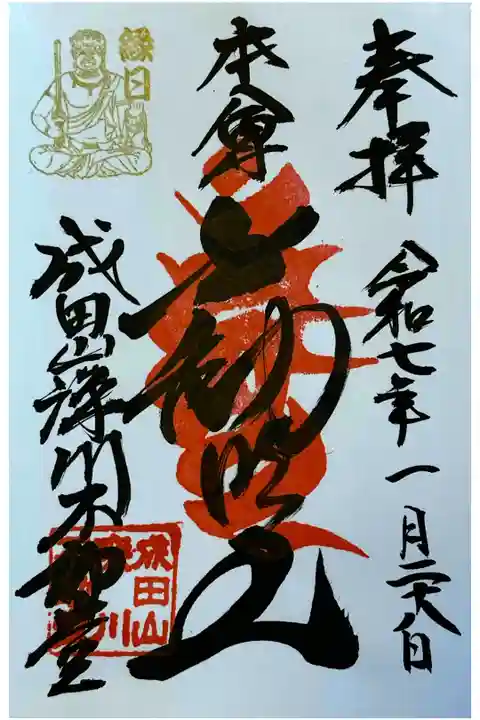 奉拝
令和七年一月二十八日
本尊
不動明王
縁日
成田山深川不動堂
成田山